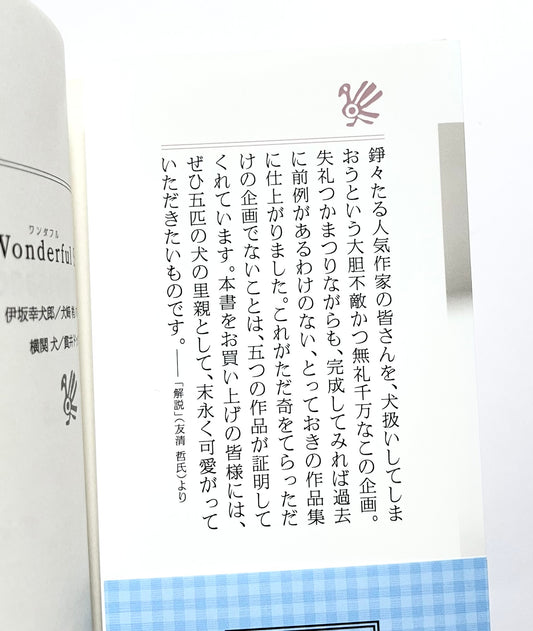 錚々たる人気作家の皆さんを、犬扱いしてしま
おうという大胆不敵かつ無礼千万なこの企画。
失礼つかまつりながらも、完成してみれば過去
に前例があるわけのない、とっておきの作品集
に仕上がりました。これがただ奇をてらっただ
けの企画でないことは、五つの作品が証明して
くれています。本書をお買い上げの皆様には、
ぜひ五匹の犬の里親として、末永く可愛がって
いただきたいものです。——「解説」(友清 哲氏)より
ワンダフル
Wonderful
伊坂幸犬郎/大崎
横関 犬/貫井